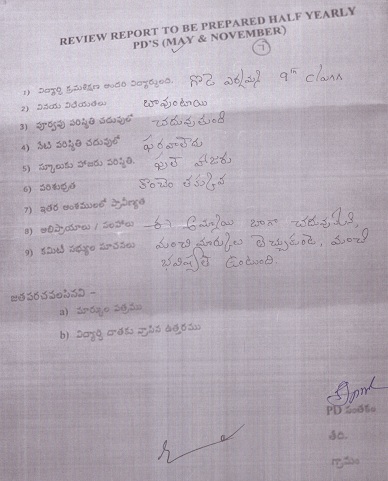 REVIEW REPORT TO BE PREPARED HALF YEARLY
PD'S (MAY & NOVEMBER)
1
1) విద్యార్థి క్రమశిక్షణ అందరి విద్యార్థులది. గొడె 9th class
2) వినయ విధేయతలు బావుంటాయి
3) పూర్వపు పరిస్థితి చదువులో చదువుతుంది
4) నేటి పరిస్థితి చదువులో ఫరవాలేదు
5) స్కూలుకు హాజరు పరిస్థితి. ఫుల్ హాజరు
6) పరిశుభ్రత కొంచెం తక్కువ
7) ఇతర అంశములలో ప్రావీణ్యత
8) అభిప్రాయాలు / సలహాలు ఈ అమ్మాయి బాగా చదువుతుంది,
9) కమిటి సభ్యుల సూచనలు మంచి మార్కులు తెచ్చుకుంటే, మంచి
భవిష్యత్ ఉంటుంది.
జతపరచవలసినవి –
a) మార్కుల పత్రము
b) విద్యార్థి దాతకు వ్రాసిన ఉత్తరము
PD సంతకం
తేది.
గ్రామం